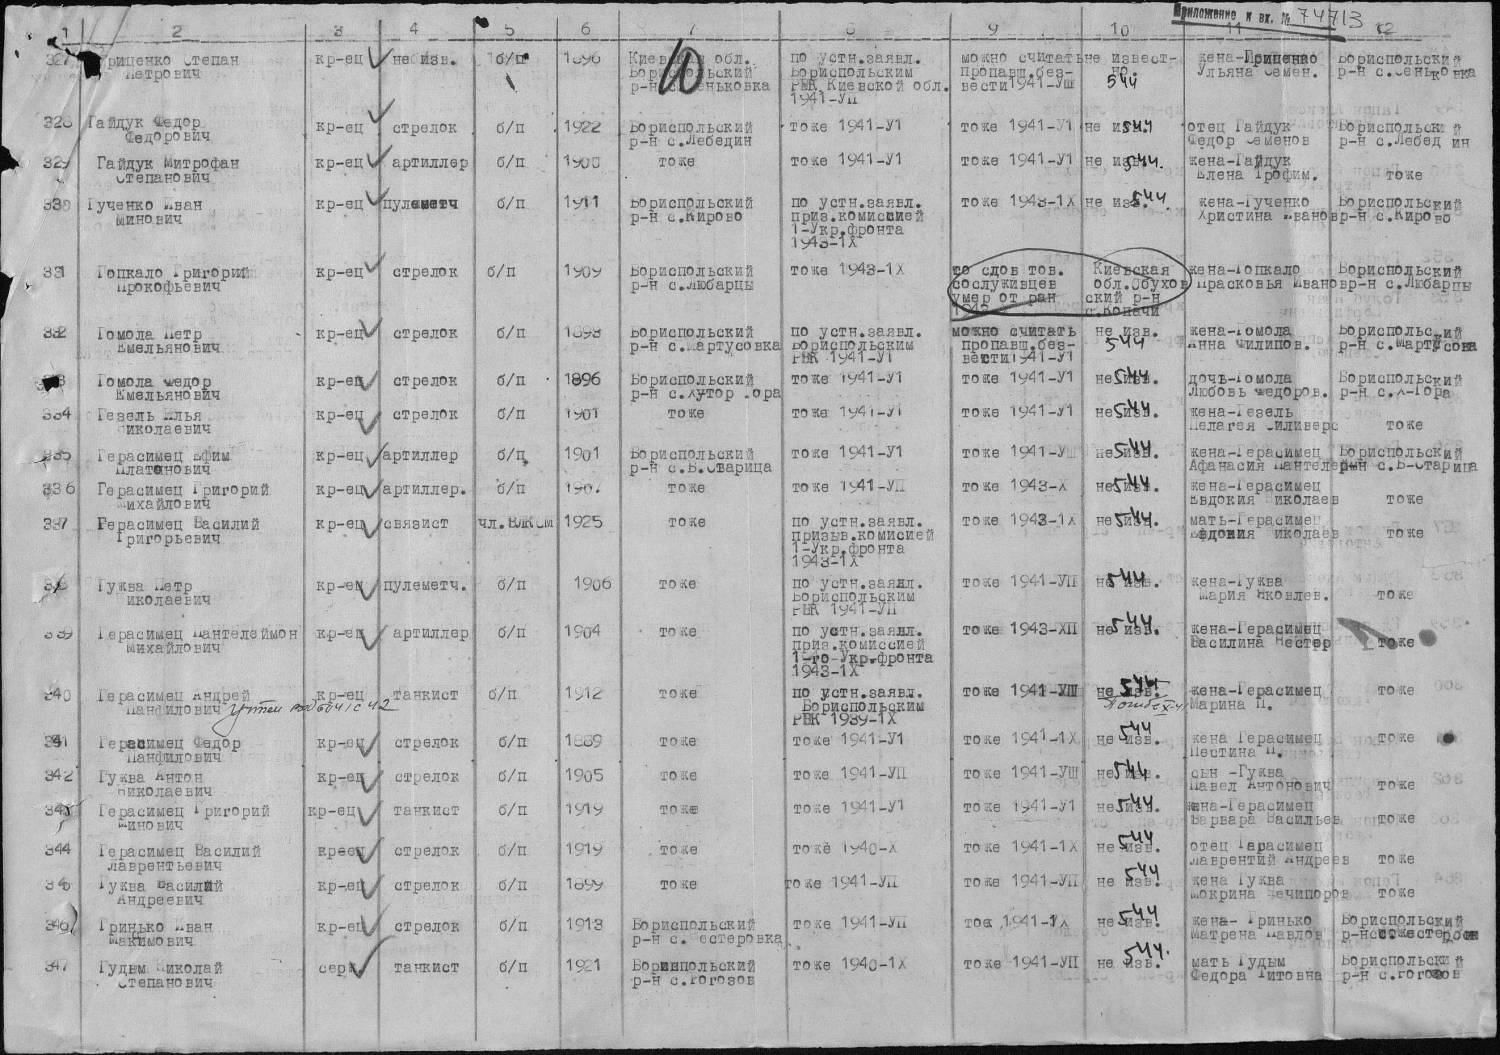 Приложение к вх. № 74713
1 2 3 4 5 6 7 8 9 10 11 12
10
327 Гриценко Степан кр-ец не изв. б/п 1896 Киевская обл. по устн.заявл. можно считать не извест- жена-Гриценко Бориспольский
Петрович Бориспольский Бориспольским пропавш.без- но. Ульяна Семен. р-н с.Сеньковка
р-н с.Сеньковка РВК Киевской обл. вести 1941-УШ 544
1941-УП
328 Гайдук Федор кр-ец стрелок б/п 1922 Бориспольский тоже 1941-У1 тоже 1941-У1 не изв. 544 отец Гайдук Бориспольский
Федорович р-н с.Лебедин Федор Семенов р-н с.Лебедин
329 Гайдук Митрофан кр-ец артиллер б/п 1900 тоже тоже 1941-У1 тоже 1941-У1 не изв. 544. жена-Гайдук
Степанович Елена Трофим. тоже
330 Гученко Иван кр-ец пулеметч б/п 1911 Бориспольский по устн.заявл. тоже 1943-1Х не изв. 544 жена-Гученко Бориспольский
Минович р-н с.Кирово приз.комиссией Христина Иванов р-н с.Кирово
1-Укр.фронта
1943-1Х
331 Гопкало Григорий кр-ец стрелок б/п 1909 Бориспольский тоже 1943-1Х со слов тов. Киевская жена-Гопкало Бориспольский
Прокофьевич р-н с.Любарцы сослуживцев обл.Обухов Прасковья Иванов р-н с.Любарцы
умер от ран ский р-н
1943 с.Копачи
332 Гомола Петр кр-ец стрелок б/п 1893 Бориспольский по устн.заявл. можно считать не изв. жена-Гомола Бориспольский
Емельянович р-н с.Мартусовка Бориспольским пропавш.без- 544 Анна Филипов. р-н с.Мартусовка
РВК 1941-У1 вести 1941-У1
333 Гомола Федор кр-ец стрелок б/п 1896 Бориспольский тоже 1941-У1 тоже 1941-У1 не изв. 544 дочь-Гомола Бориспольский
Емельянович р-н с.Хутор Гора Любовь Федоров. р-н с.Х-Гора
334 Гезель Илья кр-ец стрелок б/п 1901 тоже тоже 1941-У1 тоже 1941-У1 не изв. 544 жена-Гезель
Николаевич Пелагея Силиверс тоже
335 Герасимец Ефим кр-ец артиллер б/п 1901 Бориспольский тоже 1941-У1 тоже 1941-УШ не изв. 544 жена-Герасимец Бориспольский
Платонович р-н с.В.Старица Афанасия Пантелей р-н с.В-Старица
336 Герасимец Григорий кр-ец артиллер. б/п тоже тоже 1941-УП тоже 1943-Х не изв. 544 жена-Герасимец
Михайлович Евдокия Николаев тоже
337 Герасимец Василий кр-ец связист чл.ВЛКСМ 1925 тоже по устн.заявл. тоже 1943-1Х не изв. 544 мать-Герасимец
Григорьевич призыв.комисией Евдокия Николаев тоже
1-Укр.фронта
1943-1Х
338 Гуква Петр кр-ец пулеметч. б/п 1906 тоже по устн.заявл. тоже 1941-УП не изв. 544 жена-Гуква
Николаевич Бориспольским Мария Яковлев. тоже
РВК 1941-УП
339 Герасимец Пантелеймон кр-ец артиллер б/п 1904 тоже по устн.заявл. тоже 1943-ХП не изв. 544 жена-Герасимец
Михайлович приз.комиссией Василина Нестер тоже
1-го Укр.фронта
1943-1Х
340 Герасимец Андрей кр-ец танкист б/п 1912 тоже по устн.заявл. тоже 1941-УШ не изв. 544 жена-Герасимец тоже
Панфилович Бориспольским Марина П.
РВК 1939-1Х
341 Герасимец Федор кр-ец стрелок б/п 1889 тоже тоже 1941-У1 тоже 1941-1Х не изв. 544 жена Герасимец тоже
Панфилович Пестина П.
342 Гуква Антон кр-ец стрелок б/п 1905 тоже тоже 1941-УП тоже 1941-УШ не изв. 544 сын -Гуква
Николаевич Павел Антонович тоже
343 Герасимец Григорий кр-ец танкист б/п 1919 тоже тоже 1941-У1 тоже 1941-У1 не изв. 544 жена-Герасимец
Минович Варвара Васильев тоже
344 Герасимец Василий кр-ец стрелок б/п 1919 тоже тоже 1940-Х тоже 1941-1Х не изв. 544 отец Гарасимец
Лаврентьевич Лаврентий Андреев тоже
345 Гуква Василий кр-ец стрелок б/п 1899 тоже тоже 1941-УП тоже 1941-УП не изв. 544 жена Гуква
Андреевич Мокрина Нечипоров тоже
346 Гринько Иван кр-ец стрелок б/п 1913 Бориспольский тоже 1941-УП тоже 1941-1Х не изв. 544 жена- Гринько Бориспольский
Макимович р-н с.Нестеровка Матрена Павлов р-н с.
347 Гудым Николай серж танкист б/п 1921 Бориспольский тоже 1940-1Х тоже 1941-УП не изв. 544. мать Гудым Бориспольский
Степанович р-н с.Рогозов Федора Титовна р-н с.Рогозов